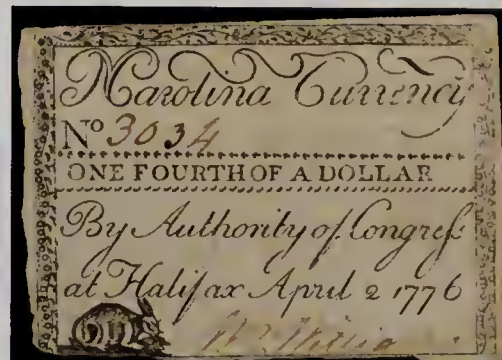 N Carolina Currency
No 3034
ONE FOURTH OF A DOLLAR
By Authority of Congreſs
at Halifax April 2 1776